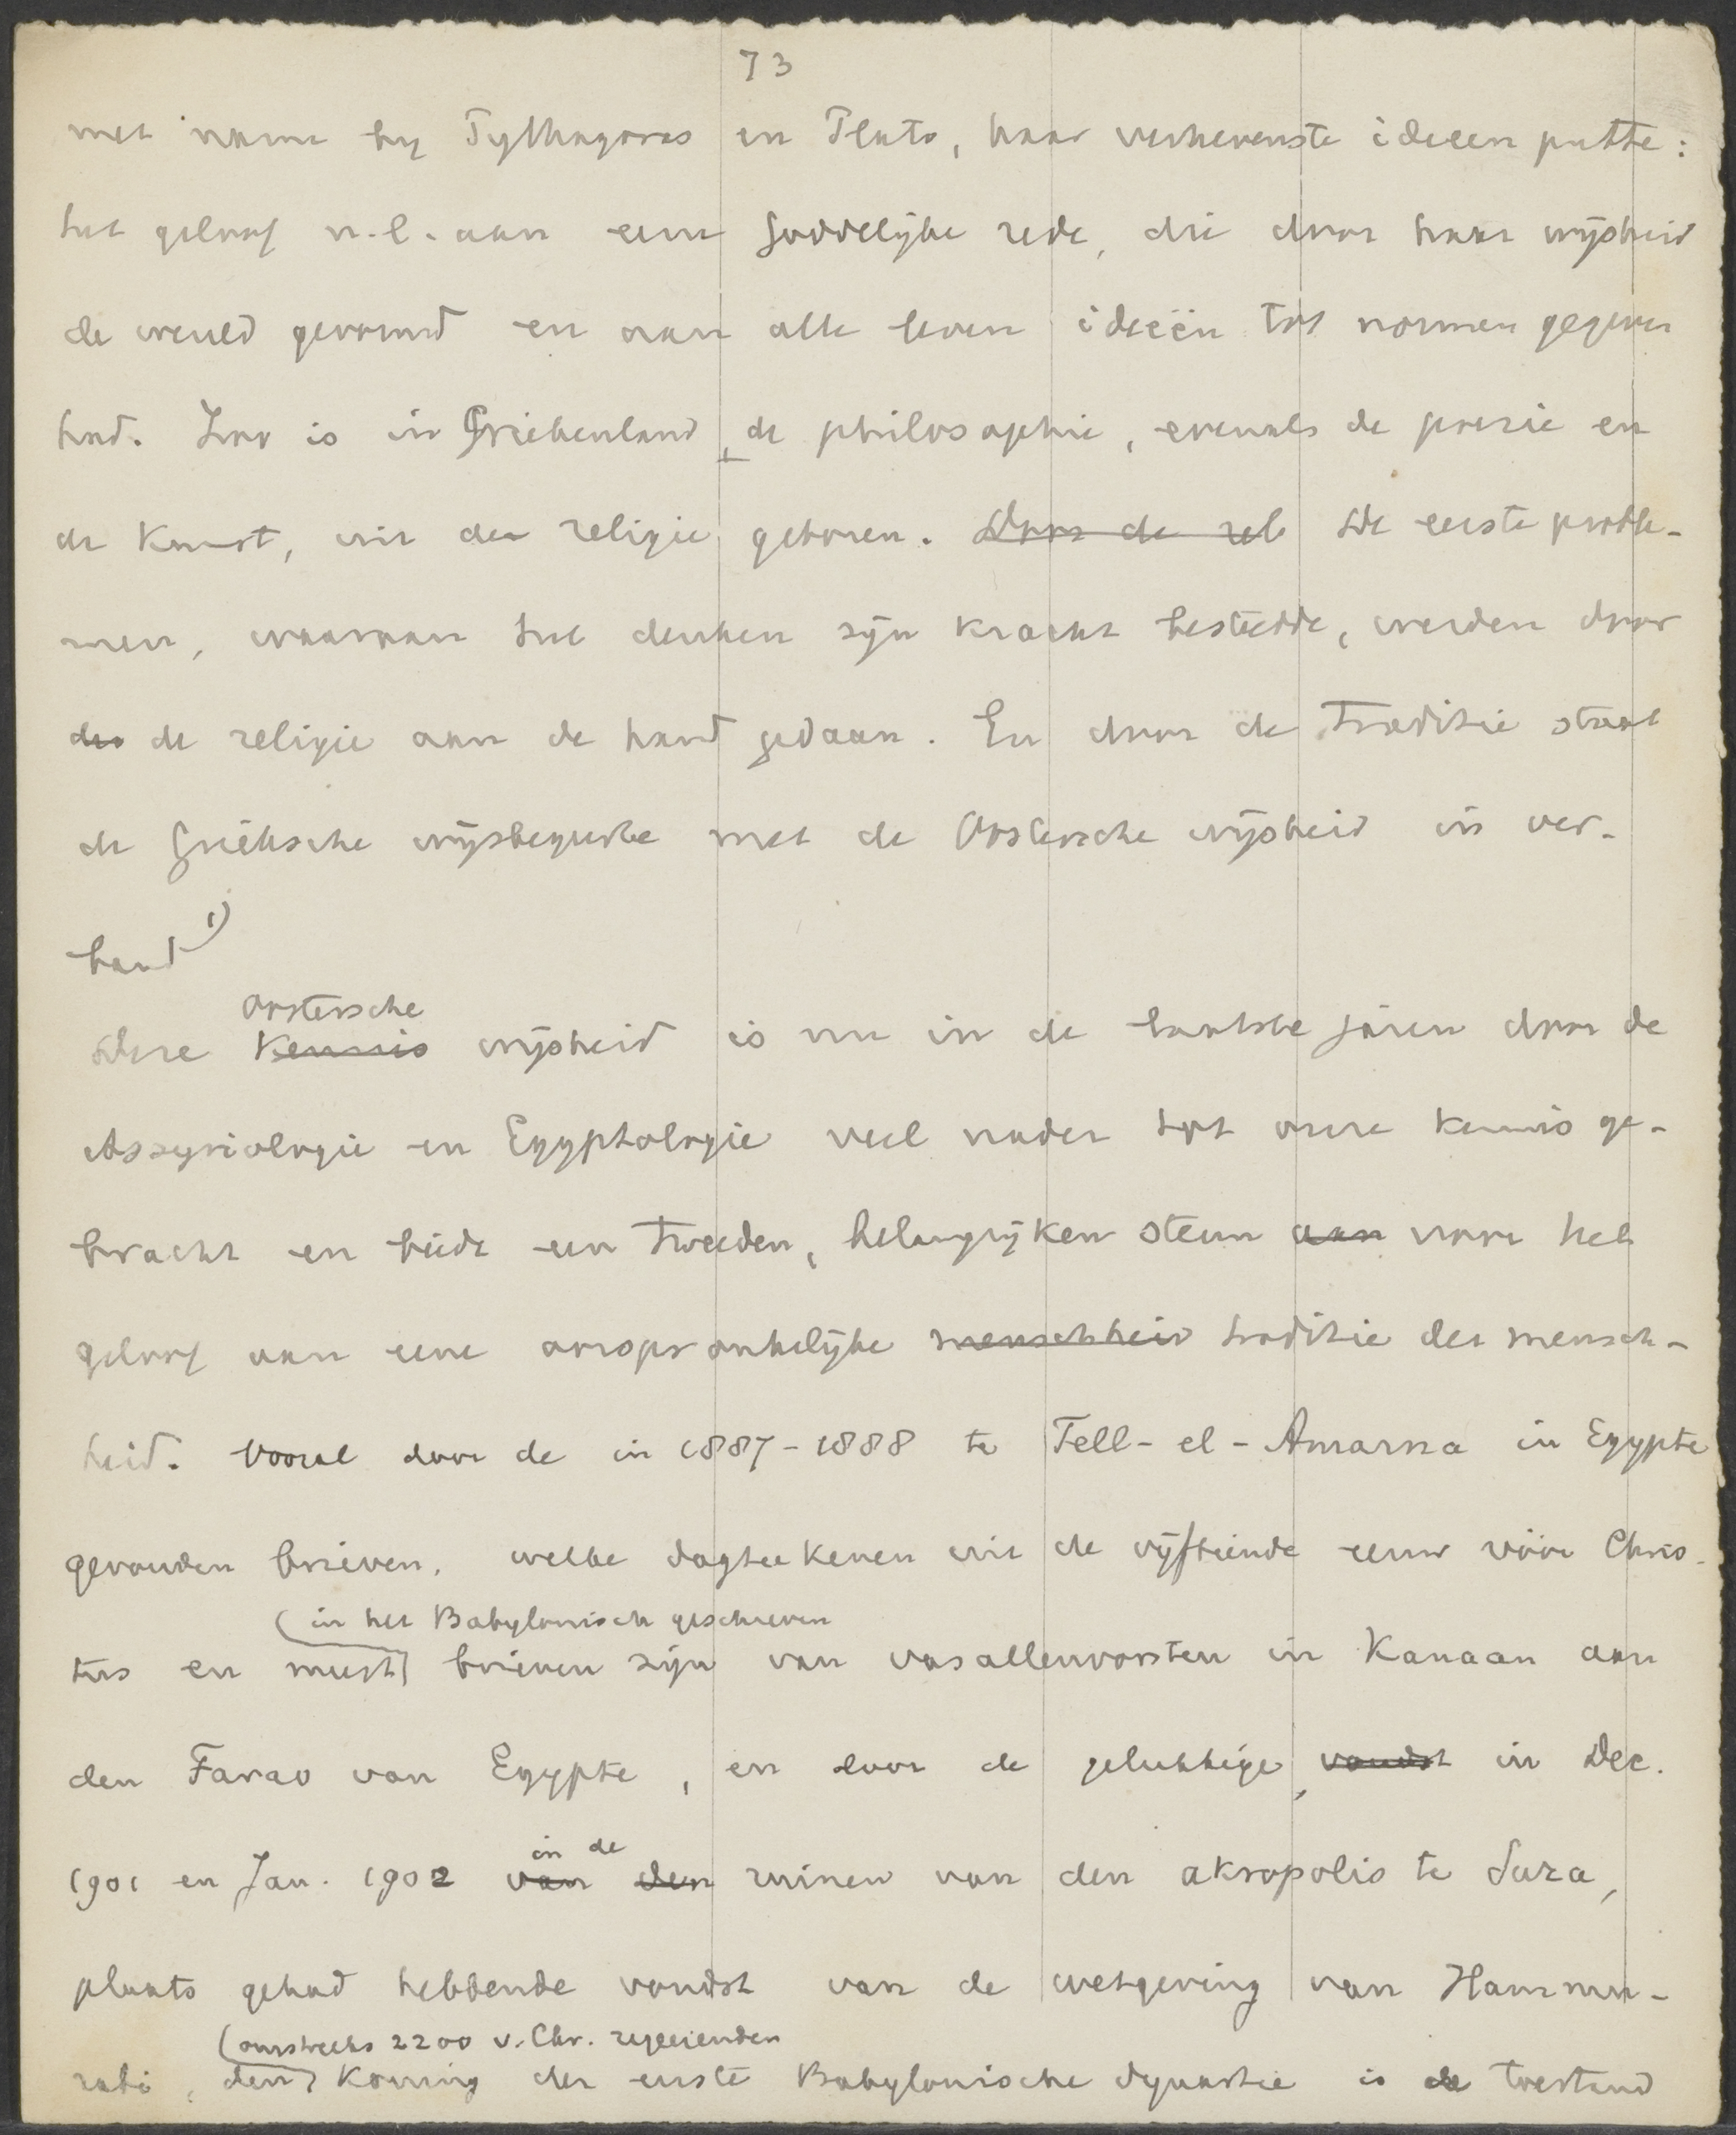 73
met name by Pythagoras en Plato, haar verhevenste ideeen putte:
het geloof n.l. aan eene goddelijke rede, die door haar wijsheid
de wereld gevormd en aan alle leven ideeën tot normen gegeven
had. Zoo is in Griekenland, de philosophie, evenals de poezie en
de Kunst, uit de religie geboren. Door de rel De eerste proble-
men, waaraan het denken zijn kracht besteedde, werden door
des de religie aan de hand gedaan. En door de traditie staat
de Grieksche wijsbegeerte met de Oostersche wijsheid in ver-
band 1)
Oostersche
Deze Kennis wijsheid is nu in de laatste jaren door de
Assyriologie en Egyptologie veel nader tot onze kennis ge-
bracht en biedt een tweeden, belangrijken steun aan voor het
geloof aan eene oorspronkelijke menschheid traditie der mensch-
heid. Vooral door de in 1887-1888 te Tell-el-Amarna in Egypte
gevonden brieven, welke dagteekenen uit de vijftiende eeuw vóór Chris-
(in het Babylonisch geschreven
tus en meest brieven zijn van vasallenvorsten in Kanaan aan
den Farao van Egypte, en door de gelukkige, vondst in Dec.
in de
1901 en Jan. 1902 van den ruinen van den akropolis te Suza,
plaats gehad hebbende vondst van de wetgeving van Hammu-
(omstreeks 2200 v. Chr. regeerenden
rabi, den Koning der eerste Babylonische dynastie is de toestand